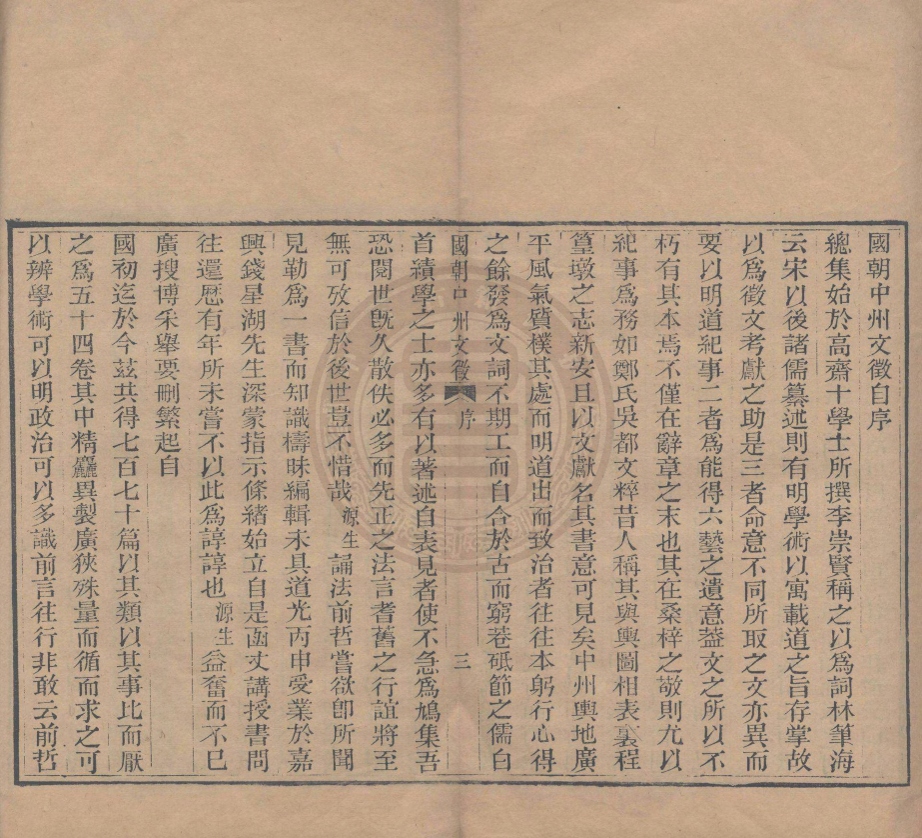 國朝中州文徵自序
總集始於高齋十學士所撰李崇賢稱之以爲詞林筆海
云宋以後諸儒纂述則有明學術以寓載道之旨存掌故
以爲徵文考獻之助是三者命意不同所取之文亦異而
要以明道紀事二者爲能得六藝之遺意葢文之所以不
朽有其本焉不僅在辭章之末也其在桑梓之敬則尤以
紀事爲務如鄭氏吳都文粹昔人稱其與輿圖相表裏程
篁墩之志新安且以文獻名其書意可見矣中州輿地廣
平風氣質樸其處而明道出而致治者往往本躬行心得
之餘發爲文詞不期工而自合於古而窮巷砥節之儒白
國朝中州文徵 序 三
首績學之士亦多有以著述自表見者使不急爲鳩集吾
恐閱世旣久散佚必多而先正之法言耆舊之行誼將至
無可攷信於後世豈不惜哉源生誦法前哲嘗欲卽所聞
見勒爲一書而知識檮昧編輯未具道光丙申受業於嘉
興錢星湖先生深蒙指示條緒始立自是函丈講授書問
往還歷有年所未嘗不以此爲諄諄也源生益奮而不已
廣搜博采舉要刪繁起自
國初迄於今茲共得七百七十篇以其類以其事比而厭
之爲五十四卷其中精麤異製廣狹殊量而循而求之可
以辨學術可以明政治可以多識前言往行非敢云前哲